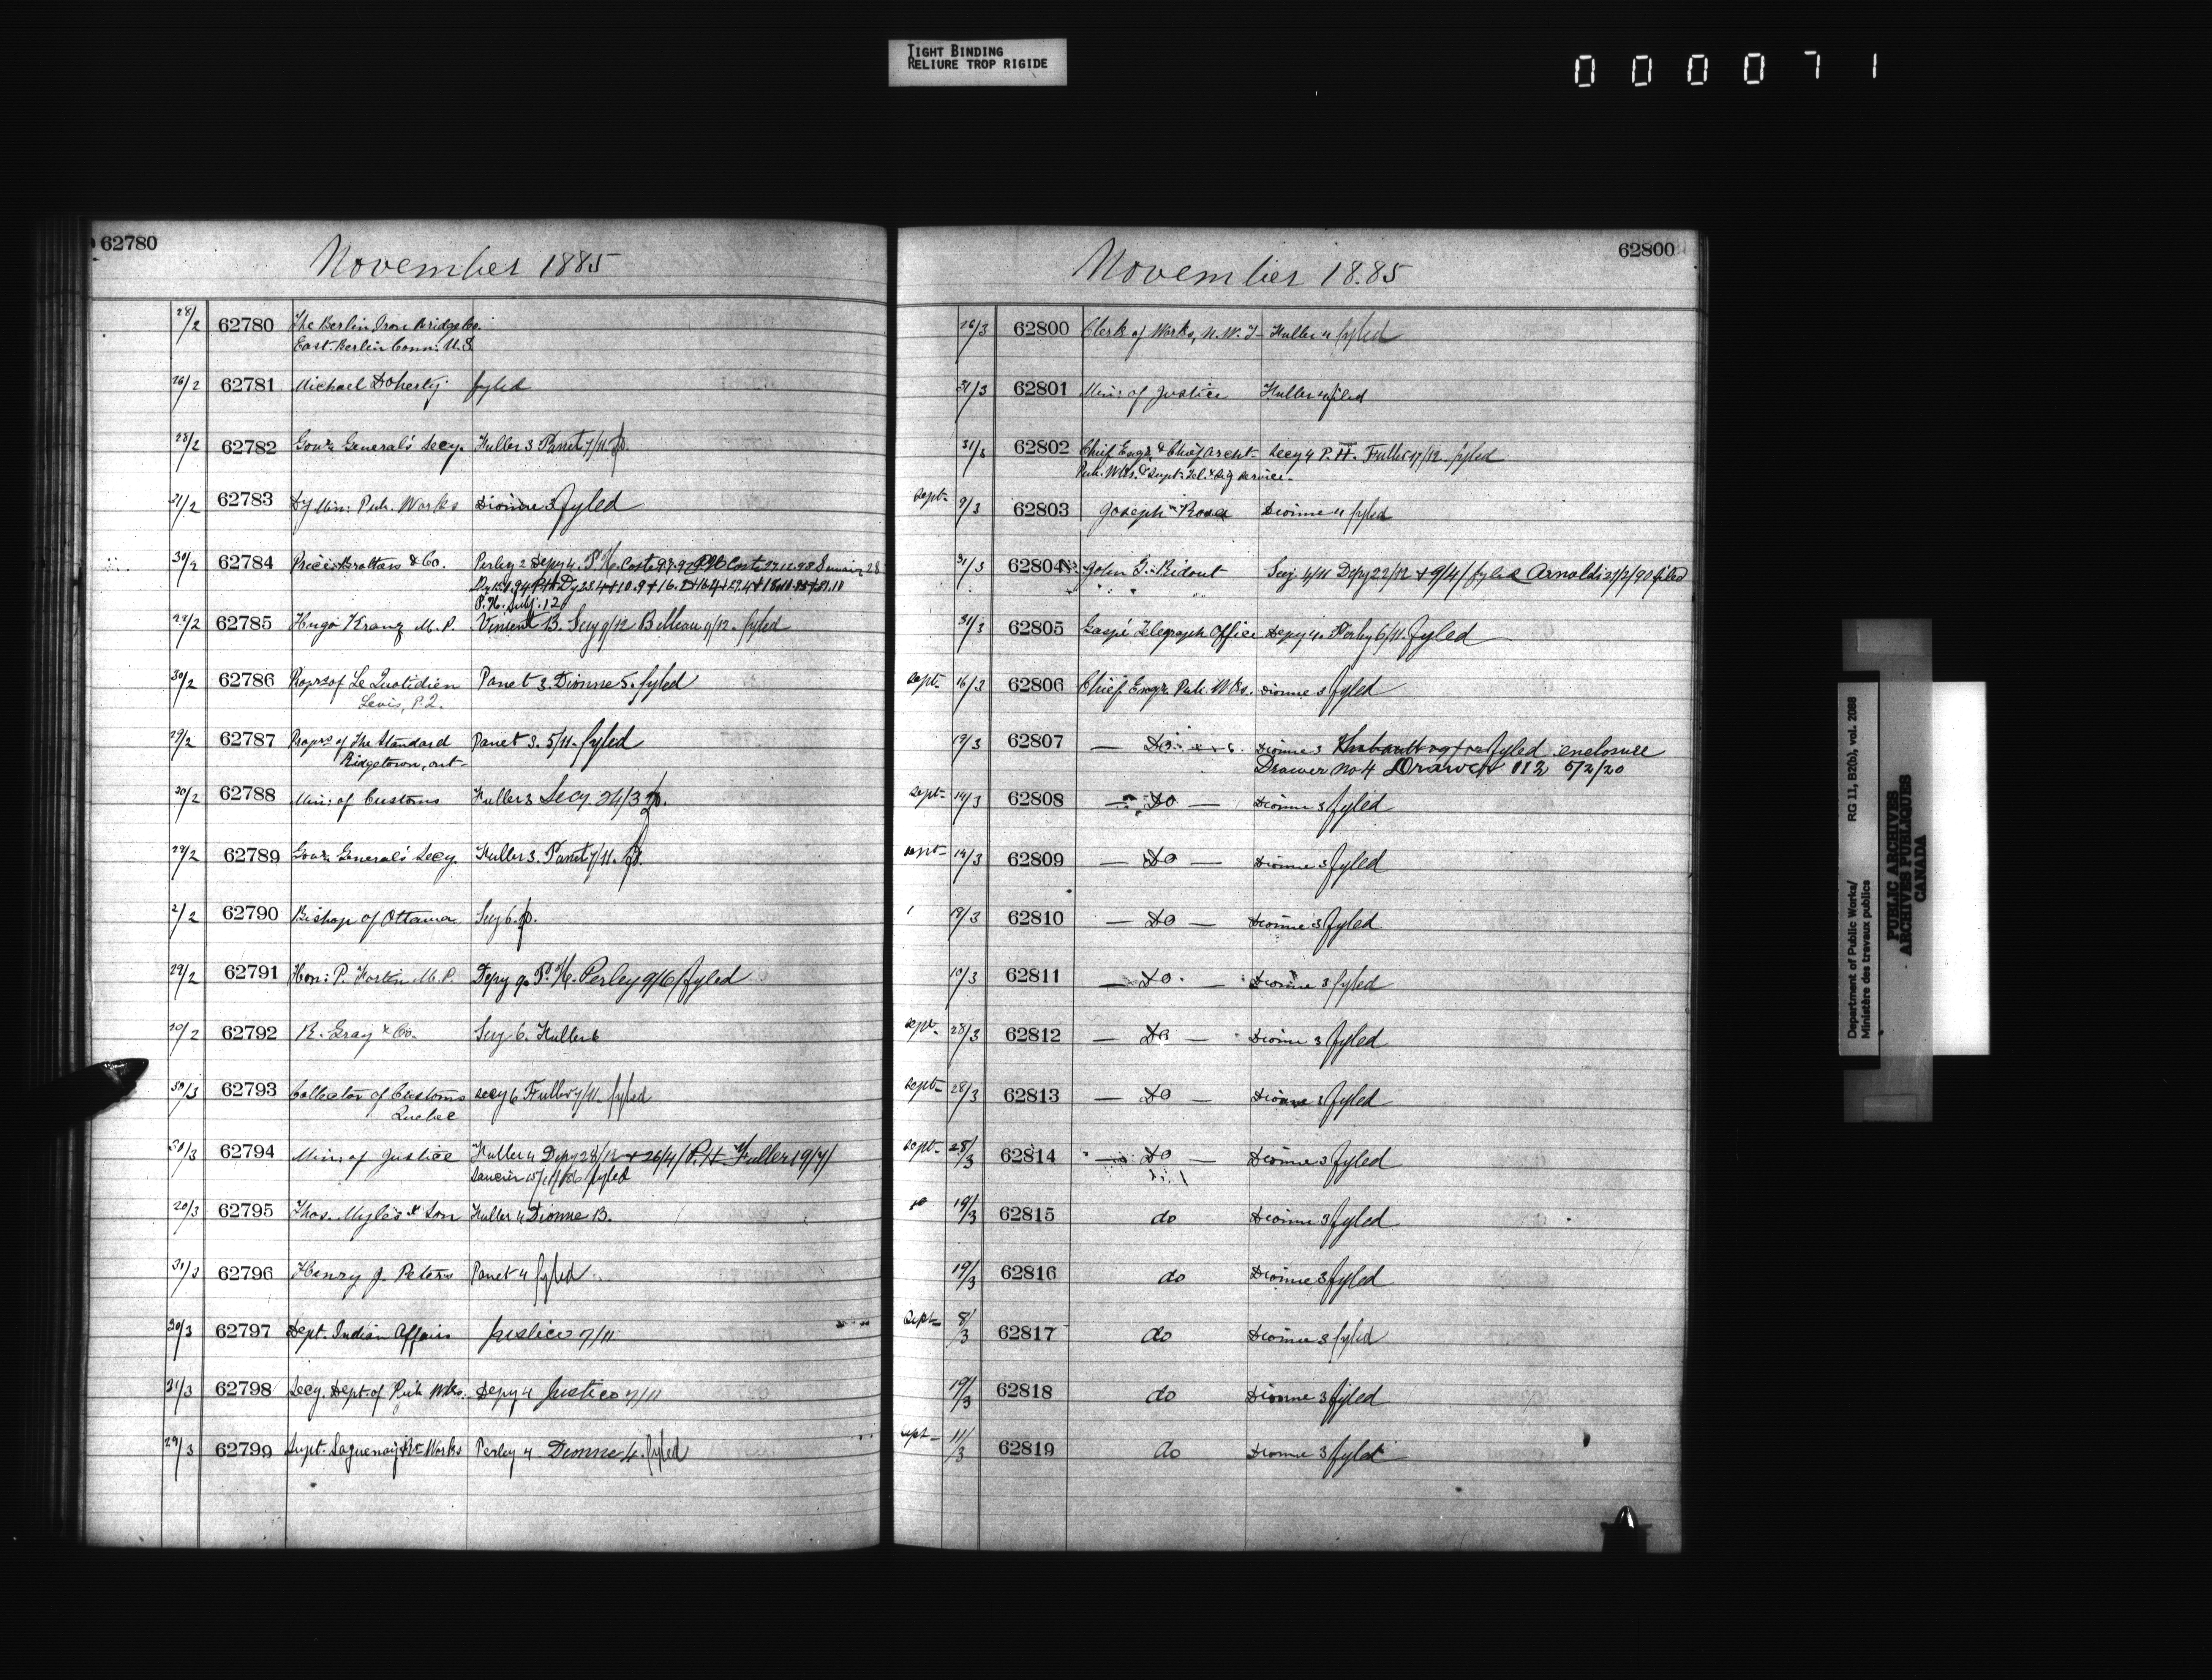 TIGHT BINDING
RELIURE TROP RIGIDE
000071
62780
November 1885
28/2 62780 The Berlin Iron Bridge Co.
East Berlin Conn: U.S
26/2 62781 Michael Doherty fyled
28/2 62782 Govr. General's Secy. Fuller 3 Panet 7/11.
31/2 62783 Dy Min: Pub. Works Dionne 3 fyled
30/2 62784 Price Brothers & Co. Perley 2 Depy 4. P. H. Coste
P. H. Subj. 12
62785 Hugo Kranz M. P. Vincent B. Secy 9/12 Belleau 9/12. fyled
30/2 62786 Proprs of Le Quotidien Panet 3. Dionne 5. fyled
Levis, P.Q.
29/2 62787 Proprs of The Standard Panet 3. 5/11. fyled
Ridgetown, ont-
30/2 62788 Min: of Customs Fuller 3 Secy. 24/3
29/2 62789 Govr. General's Secy. Fuller 3. Panet 7/11.
2/2 62790 Bishop of Ottawa Secy 6.
29/2 62791 Hon: P. Fortin M. P. Depy 9. P. H. Perley 9/6/ fyled
62792 R. Gray & Co. Secy 6. Fuller 6
30/3 62793 Collector of Customs secy 6 Fuller 7/11- fyled
Quebec
62794 Min: of Justice Fuller 4 Depy 28/12 + 26/4/ P. H. Fuller 19/7/
fyled
20/3 62795 Thos. Myles & Son Fuller 4 Dionne B.
31/3 62796 Henry J. Peters Panet 4 fyled
30/3 62797 Dept. Indian Affairs Justice 7/11
31/3 62798 Secy. Dept. of Pub Wks. Depy 4 Justice 7/11
29/3 62799 Supt. Saguenay Works Perley 4 Dionne 4. fyled
62800
November 1885
26/3 62800 Clerk of Works, N. W. T- Fuller 4 fyled
31/3 62801 Min: of Justice Fuller 4 filed
62802 Chief Engr. & Chief Archt- Secy 4 P. H. Fuller 17/12 fyled
Pub. Wks. & Supt: Tel. & Sig Service-
Sept- 9/3 62803 Joseph Dionne 4 fyled
31/3 62804 John G. Ridout Secy. 4/11 Depy 22/12 + 9/4/ fyled Arnoldi 27/2/90 filed
31/3 62805 Gaspé Telegraph Office Depy 4. Perley 6/11. fyled
Sept- 16/3 62806 Chief Engr. Pub. Wks. Dionne 3 fyled
19/3 62807 — Do Dionne 3 fyled enclosure
Drawer No 4 Drawer 112 5/2/20
Sept- 14/3 62808 — Do — Dionne 3 fyled
sept- 14/3 62809 — Do — Dionne 3 fyled
62810 — Do — Dionne 3 fyled
10/3 62811 — Do — Dionne 3 fyled
sept- 28/3 62812 — Do — Dionne 3 fyled
sept- 28/3 62813 — Do — Dionne 3 fyled
sept- 28/3 62814 — Do — Dionne 3 fyled
19/3 62815 do Dionne 3 fyled
19/3 62816 do Dionne 3 fyled
Sept- 8/3 62817 do Dionne 3 fyled
19/3 62818 do Dionne 3 fyled
sept- 11/3 62819 do Dionne 3 fyled
Department of Public Works/ RG 11, B2(b), vol. 2088
Ministère des travaux publics
PUBLIC ARCHIVES
ARCHIVES PUBLIQUES
CANADA